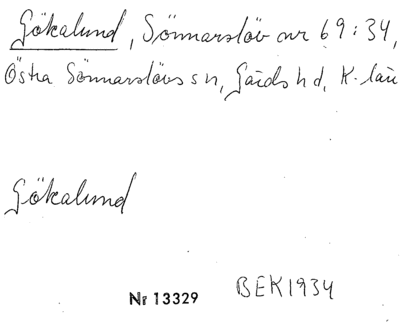 Gökalund, Sönnarslöv nr 69:34,
Östra Sönnarslövs sn, Gärds hd, K. län
Gökalund
Nr 13329 BEK1934